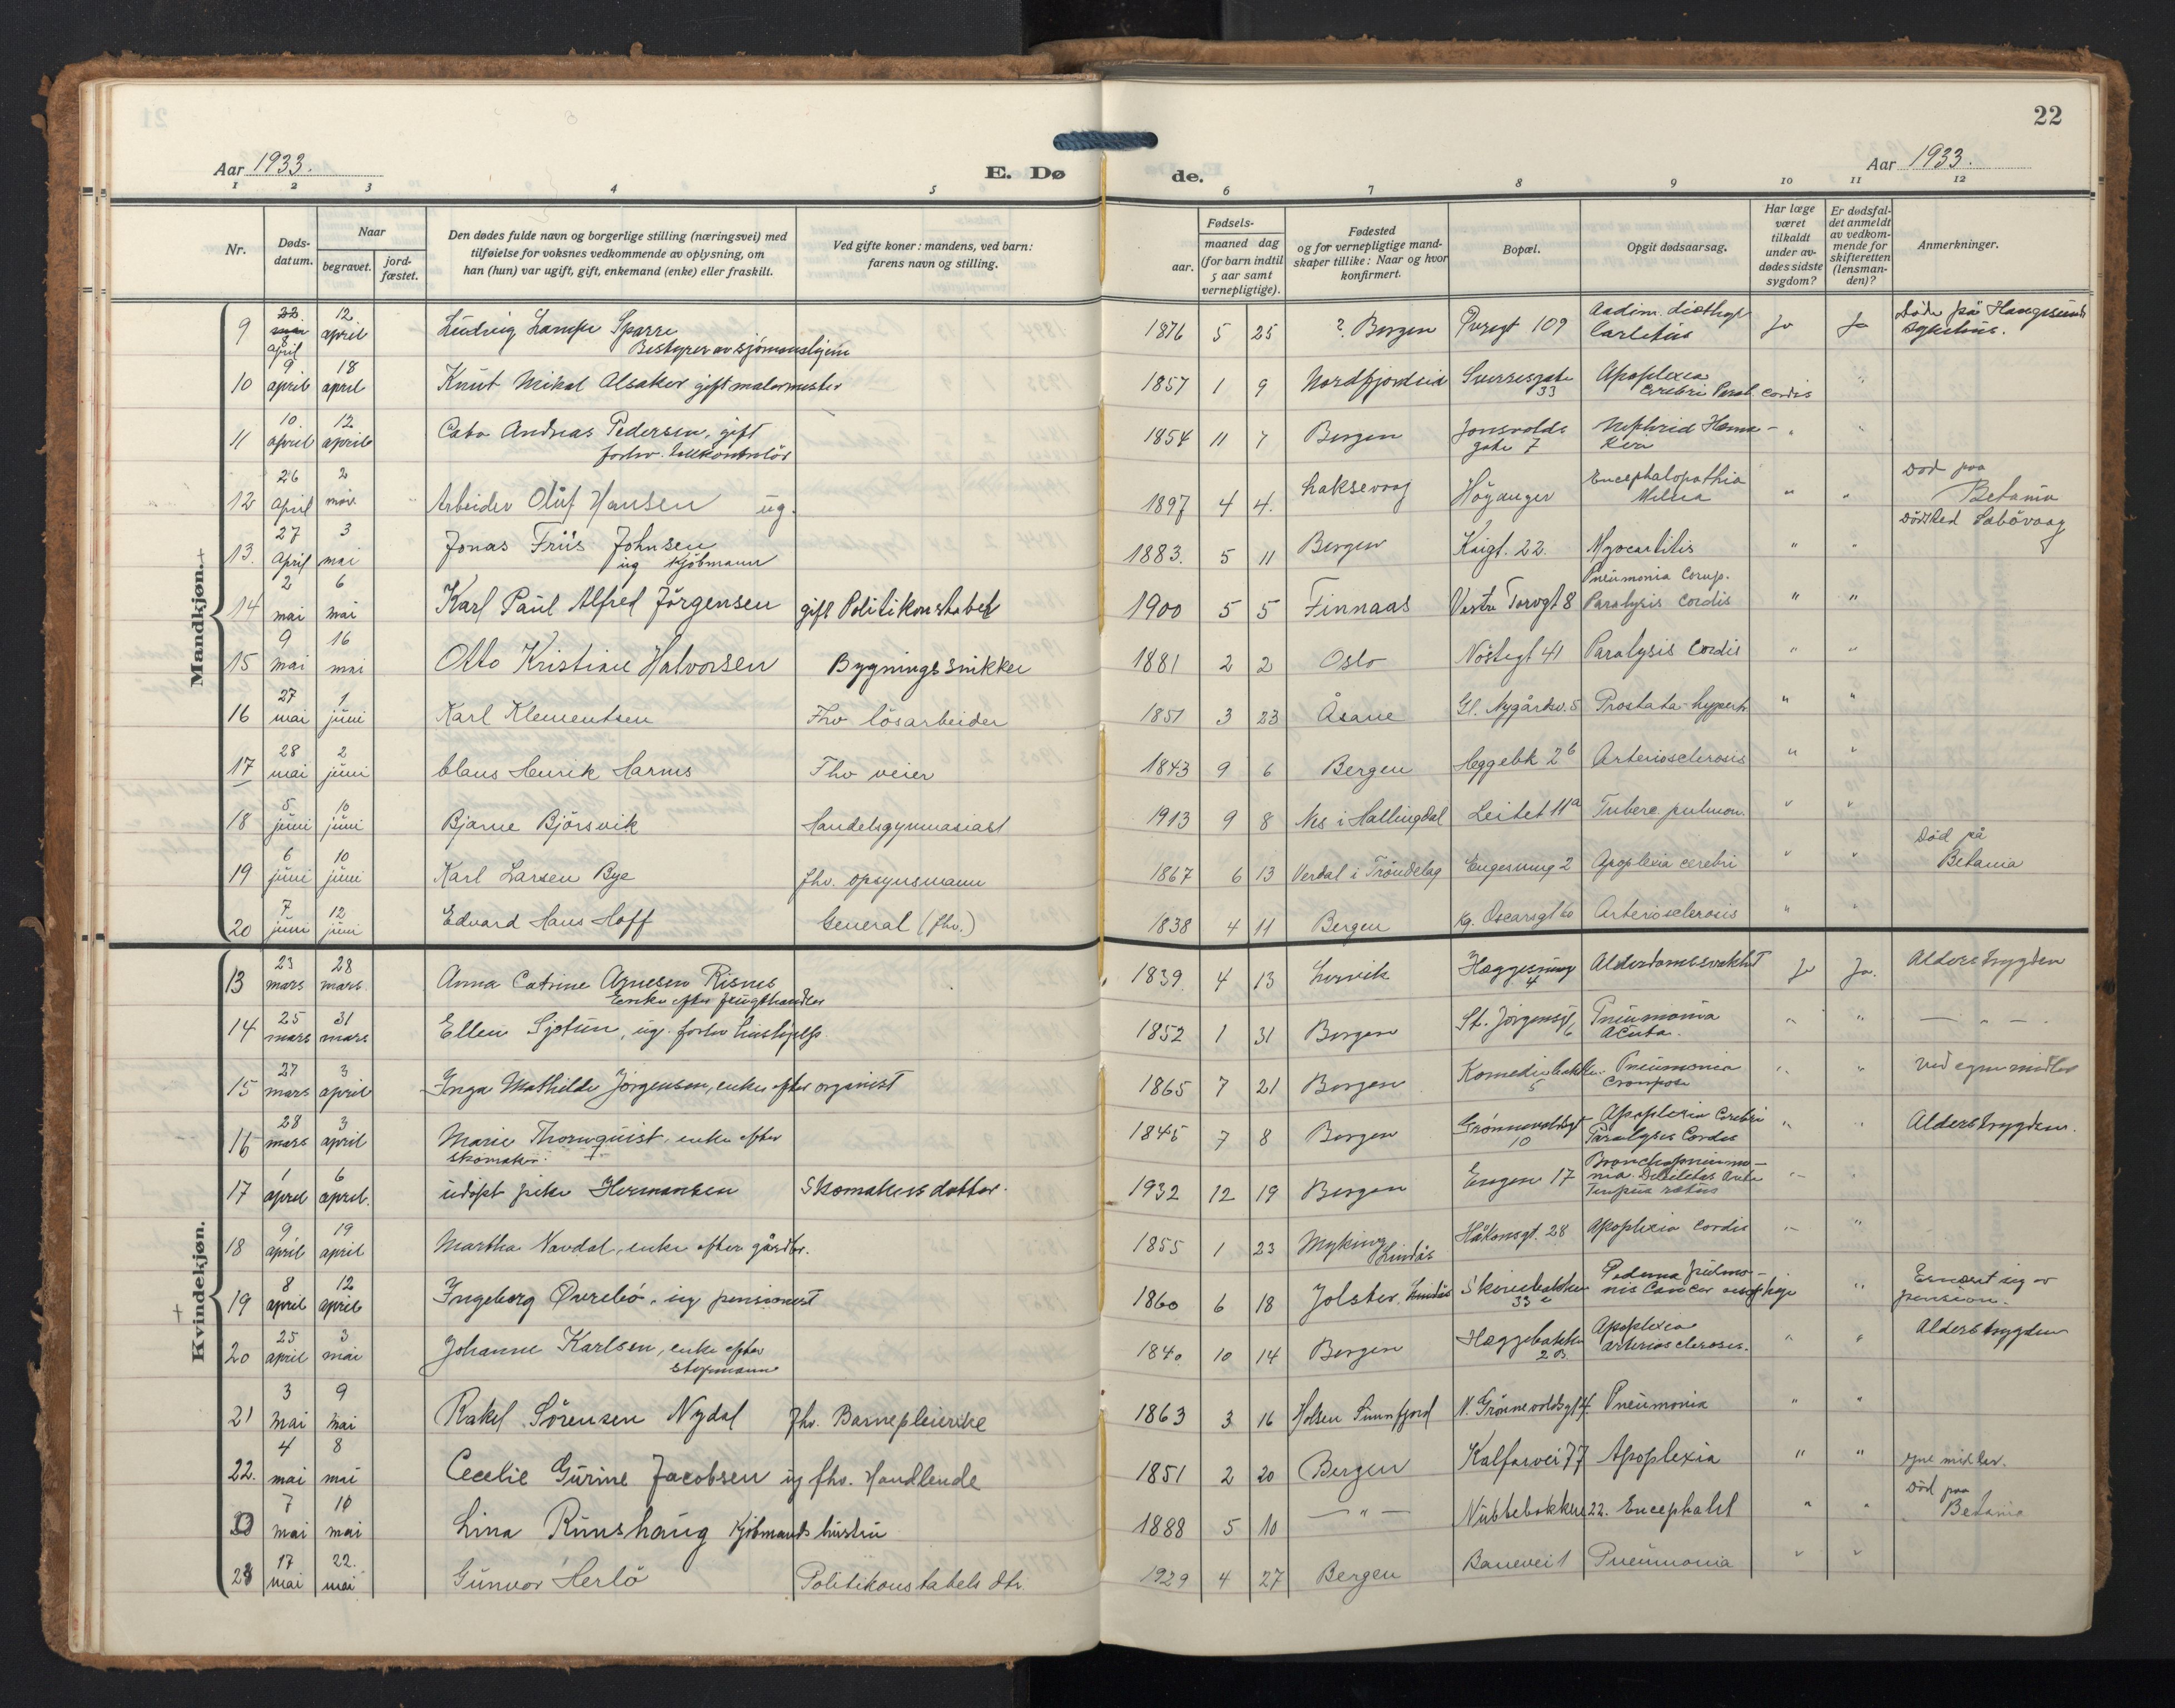 22
Aar 1933.
E. Dø de.
Aar 1933.
1 2 3 4 5 6 7 8 9 10 11 12
Nr. Døds-datum. Naar begravet. jord-fæstet. Den dødes fulde navn og borgerlige stilling (næringsvei) med tilføielse for voksnes vedkommende av oplysning, om han (hun) var ugift, gift, enkemand (enke) eller fraskilt. Ved gifte koner: mandens, ved barn: farens navn og stilling. Fødsels- aar. maaned dag (for barn indtil 5 aar samt vernepligtige). Fødested og for vernepligtige mand-skaper tillike: Naar og hvor konfirmert. Bopæl. Opgit dødsaarsag. Har læge været tilkaldt under av-dødes sidste sygdom? Er dødsfal-det anmeldt av vedkom-mende for skifteretten (lensman-den)? Anmerkninger.
Mandkjøn.
9 8 april 12 april Ludvig Lampe Sparre Bestyrer av sjömanshjem 1876 5 25 ? Bergen 109 Carlitus Ja Ja Död på Haugesunds sykehus.
10 9 april 18 april Knut Mikal Alsaker gift malermester 1857 1 9 Nordfjordeid Sverresgate 33 Apoplexia cerebri Paral. cordis "
11 10 april 12 april Cato Andreas Pedersen, gift forhv. tollkontrolör 1854 11 7 Bergen Jonsvolds gate 7 " "
12 26 April 2 mai Arbeider Oluf Hansen ug. 1897 4 4. Laksevaag Höyanger Encephalopathia " " Död paa Betania
13. 27 April 3 mai Jonas Friis Johnsen ug kjöbmann 1883. 5 11 Bergen Kaigt. 22. Myocartitis " " Dödsted Sabövaag
14 2 mai 6 mai Karl Paul Alfred Jörgensen gift Politikonstabel 1900 5 5 Finnaas Vestre Torvgt 8 Pneumonia Corup. Paralysis Cordis " "
15 9 mai 16 mai Otto Kristian Halvorsen Bygningssnikker 1881 2 2 Oslo Nöstegt 41 Paralysis Cordis " "
16 27 mai 1 juni Karl Klementsen Fhv lösarbeider 1851 3 23 Åsane Gl. Nygårdsv. 5 Prostata-hypertr " "
17 28 mai 2 juni Claus Henrik Harms Fhv veier 1843 9 6 Bergen Heggebk 2b Arteriosclerosis " "
18 5 juni 10 juni Bjarne Björsvik Handelsgymnasiast 1913 9 8 Nes i Hallingdal Leitet 11a Tuberc. pulmon. " "
19 6 juni 10 juni Karl Larsen Bye fhv. opsynsmann 1867 6 13 Verdal i Tröndelag Engesmug 2 Apoplexia cerebri " " Död på Betania
20 7 juni 12 juni Edvard Hans Hoff General (fhv.) 1838 4 11 Bergen Kg. Oscarsgt 60 Arteriosclerosis " "
Kvindekjøn.
13 23 mars 28 mars. Anna Catrine Agnesen Risnes Enke efter 1839 4 13 Heggesmug 4 Alderdomssvakhet Ja Ja. Alderstrygden
14 25 mars 31 mars Ellen Sjötun, ug. forhv hushjelp. 1852 1 31 Bergen St. Jörgensgt 6 Pneumonia Acuta. " " — " —
15 27 mars 3 april Inga Mathilde Jörgensen, enke efter organist 1865 7 21 Bergen Komediebakken 5 Pneumonia Crouposa " " Ved egne midler
16 28 mars 3 april Marie Thornquist, enke efter skomaker. 1845 7 8 Bergen Grönnevoldsgt 10 Apoplexia Cerebri Paralysis Cordis " " Alderstrygden.
17 1 april 6 april. udöpt pike Hermansen Skomakers dotter. 1932 12 19 Bergen Engen 17 Bronchopneumo-nia. Debilitas " "
18 9 april 19 april Martha Navdal, enke efter gårdbr. 1855 1 23 Myking Lindås Håkonsgt. 28 Apoplexia Cordis " "
19 8 april 12 april Ingeborg Övrebö, ug pensionert 1860 6 18 Jolster. Skivebakken 33 c Oedema pulmo-nis Cancer oesophagi " Ernært sig av pension.
20 25 april 3 mai Johanne Karlsen, enke efter 1840. 10 14 Bergen Heggebakken 2 B. Apoplexia arteriosclerosis. " " Alderstrygden
21 3 mai 9 mai Rakel Sörensen Nydal Fhv. Barnepleierske 1863 3 16 Holsen Sunnfjord N. Grönnevoldsgt 4. Pneumonia " "
22. 4 mai 8 mai Cecelie Gurine Jacobsen ug fhv. Handlende 1851 2 20 Bergen Kalfarvei 77 Apoplexia " " egne midler.
7 mai 10 mai Lina Runshaug Kjöbmands hustru 1888 5 10 — " — Nubbebakken 22. Encephalit " " Död paa Betania
23 17 mai 22. mai Gunvor Herlö Politikonstabels dtr. 1929 4 27 Bergen Banevei 1 Pneumonia " "